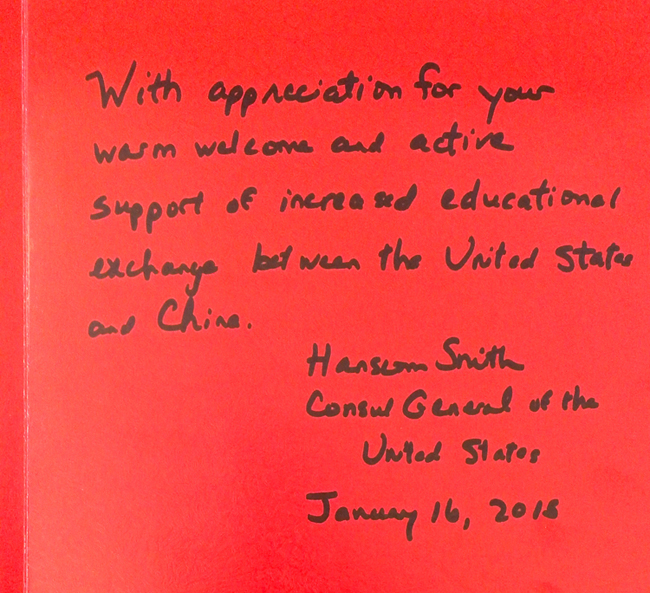 With appreciation for your
warm welcome and active
support of increased educational
exchange between the United States
and China.
Hanscom Smith
Consul General of the
United States
January 16, 2015